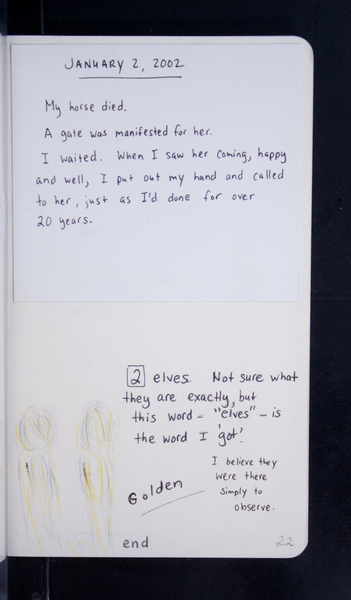 JANUARY 2, 2002
My horse died.
A gate was manifested for her.
I waited. When I saw her coming, happy
and well, I put out my hand and called
to her, just as I'd done for over
20 years.
2 elves. Not sure what
they are exactly, but
this word - "elves" - is
the word I 'got'.
I believe they
were there
simply to
observe.
Golden
end
22